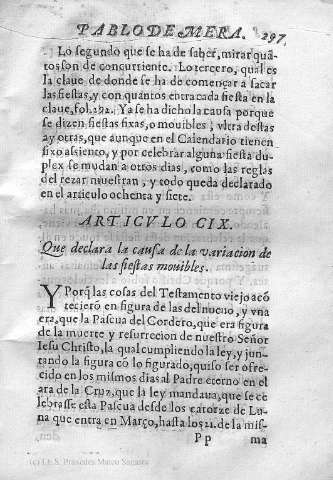 PABLO DE MERA. 297
Lo segundo que se ha de saber, mirar quã
tos son de concurriente. Lo tercero, qual es
la clave de donde se ha de començar a sacar
las fiestas, y con quantos entra cada fiesta en la
clave, fol. 292. Ya se ha dicho la causa porque
se dizen fiestas fixas, o mouibles; vltra destas
ay otras, que aunque en el Calendario tienen
fixo assiento, y por celebrar alguna fiesta du-
plex se mudan a otros dias, como las reglas
del rezar muestran, y todo queda declarado
en el articulo ochenta y siete.
ARTICVLO CIX.
Que declara la causa de la variacion de
las fiestas mouibles.
Y Porq̃ las cosas del Testamento viejo acõ
tecierõ en figura de las del nueuo, y vna
era, que la Pascua del Cordero, que era figura
de la muerte y resurreccion de nuestro Señor
Iesu Christo, la qual cumpliendo la ley, y jun-
tando la figura cõ lo figurado, quiso ser ofre-
cido en los mismos dias al Padre eterno en el
ara de la Cruz, que la ley mandaua, que se ce
lebrasse esta Pascua desde los catorze de Lu-
na que entra en Março, hasta los 21. de la mis-
Pp ma
(c) I.E.S. Práxedes Mateo Sagasta